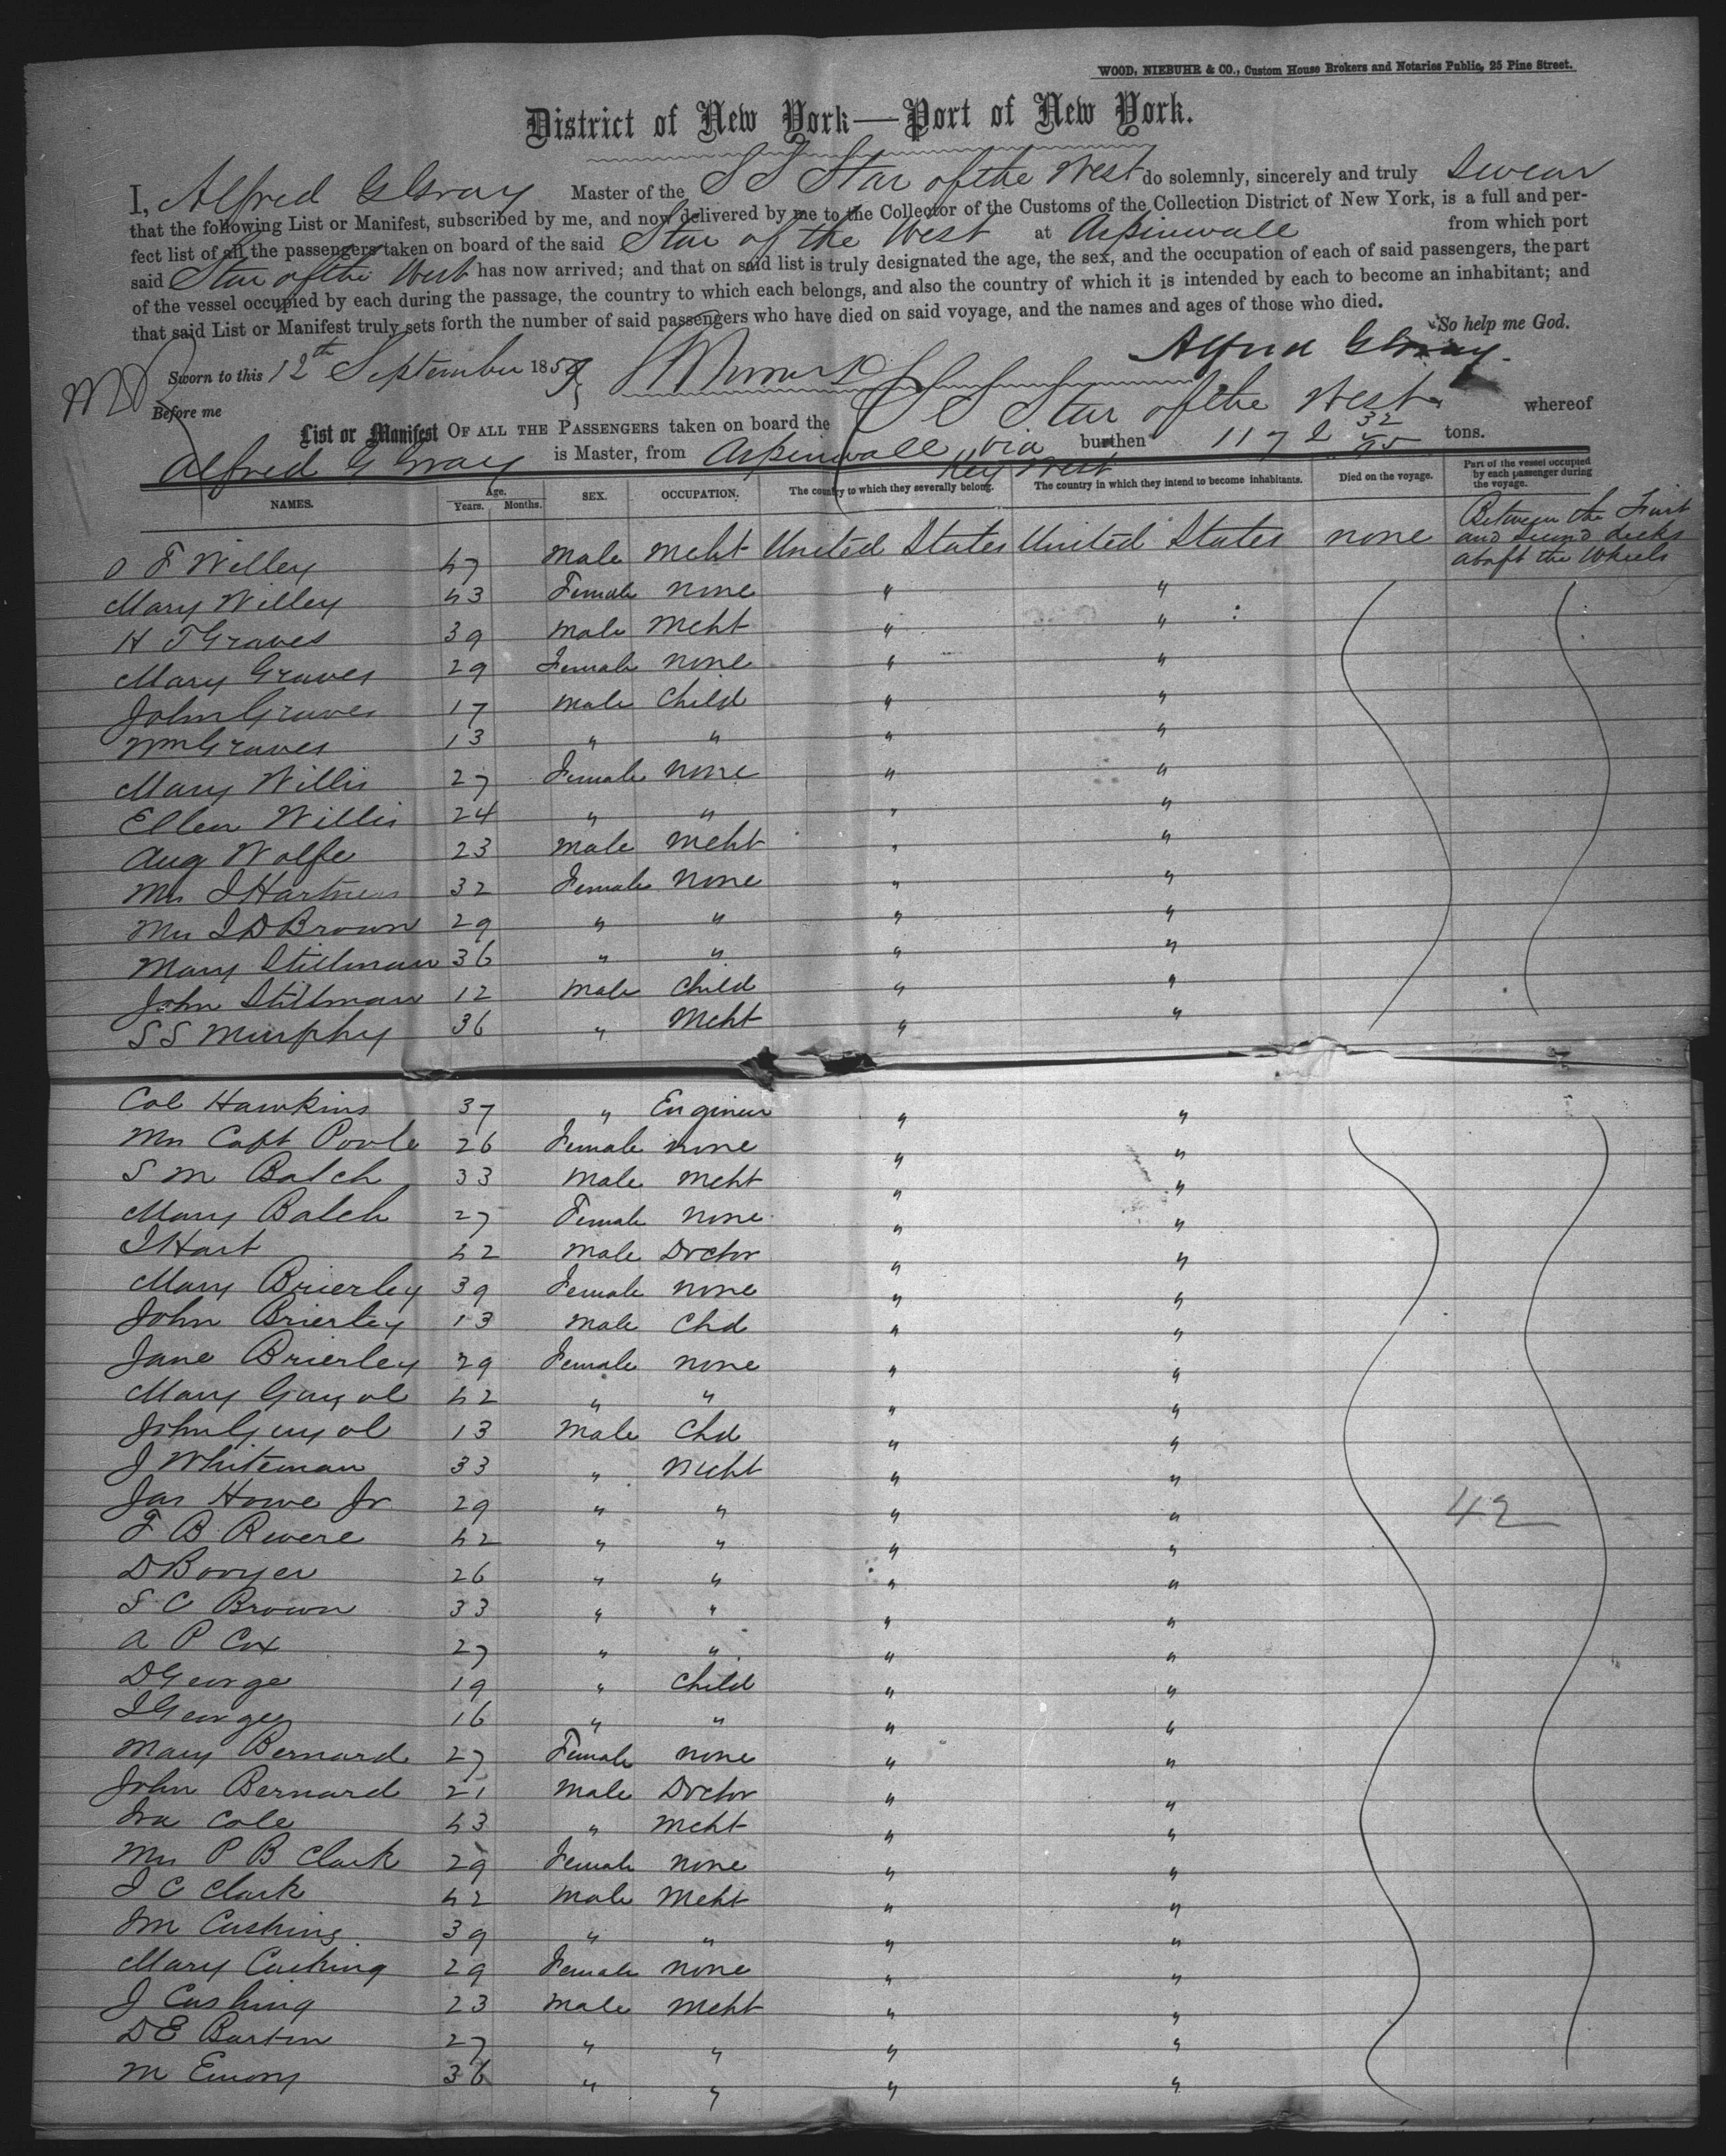 WOOD, NIEBUHR & CO., Custom House Brokers and Notaries Public, 25 Pine Street.
District of New York—Port of New York.
I, Alfred G Gray Master of the S S Star of the West do solemnly, sincerely and truly Swear
that the following List or Manifest, subscribed by me, and now delivered by me to the Collector of the Customs of the Collection District of New York, is a full and per-
fect list of all the passengers taken on board of the said Star of the West at Aspinwall from which port
said Star of the West has now arrived; and that on said list is truly designated the age, the sex, and the occupation of each of said passengers, the part
of the vessel occupied by each during the passage, the country to which each belongs, and also the country of which it is intended by each to become an inhabitant; and
that said List or Manifest truly sets forth the number of said passengers who have died on said voyage, and the names and ages of those who died.
So help me God.
Sworn to this 12th September 1859 Alfred G Gray.
Before me
List or Manifest OF ALL THE PASSENGERS taken on board the S S Star of the West whereof
Alfred G Gray is Master, from Aspinwall via Key West burthen 1172 32/95 tons.
NAMES. Age. Years. Months. SEX. OCCUPATION. The country to which they severally belong. The country in which they intend to become inhabitants. Died on the voyage. Part of the vessel occupied by each passenger during the voyage.
O F Willey 47 male mcht United States United States none Between the First and Second decks abaft the Wheels
Mary Willey 43 Female none " "
H T Graves 39 male mcht " "
Mary Graves 29 Female none " "
John Graves 17 male Child " "
Wm Graves 13 " " " "
Mary Willis 27 Female none " "
Ellen Willis 24 " " " "
Aug Wolfe 23 male mcht " "
Mrs I Hartness 32 Female none " "
Mrs I D Brown 29 " " " "
Mary Stillman 36 " " " "
John Stillman 12 male Child " "
S S Murphy 36 " Mcht " "
Col Hawkins 37 " Engineer " "
Mrs Capt Poole 26 Female none " "
S M Balch 33 male mcht " "
Mary Balch 27 Female none " "
I Hart 42 male Doctor " "
Mary Brierley 39 Female none " "
John Brierley 13 male Chd " "
Jane Brierley 29 Female none " "
Mary Gayol 42 " " " "
John Gayol 13 male Chd " "
J Whiteman 33 " mcht " "
Jas Howe Jr 29 " " " " 42
F B Revere 42 " " " "
D Booyer 26 " " " "
S C Brown 33 " " " "
A P Cox 27 " " " "
D George 19 " Child " "
I George 16 " " " "
Mary Bernard 27 Female none " "
John Bernard 21 male Doctor " "
Ira Cole 43 " mcht " "
Mrs P B Clark 29 Female none " "
I C Clark 42 male mcht " "
Jm Cushing 39 " " " "
Mary Cushing 29 Female none " "
J Cushing 23 male mcht " "
D E Barton 27 " " " "
M Emory 36 " " " "